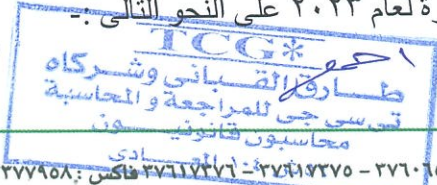 رة لعام ٢٠٢٣ على النحو التالى :-
TCG*
طـارق القـبـانى وشـركـاه
تى سى جى للمراجعة و المحاسبة
محاسبون قانونيــون
المعـادى
٣٧٦٠٦ - ٣٧٦١٧٣٧٥ - ٣٧٦١٧٣٧٦ فاكس : ٣٧٧٩٥٨